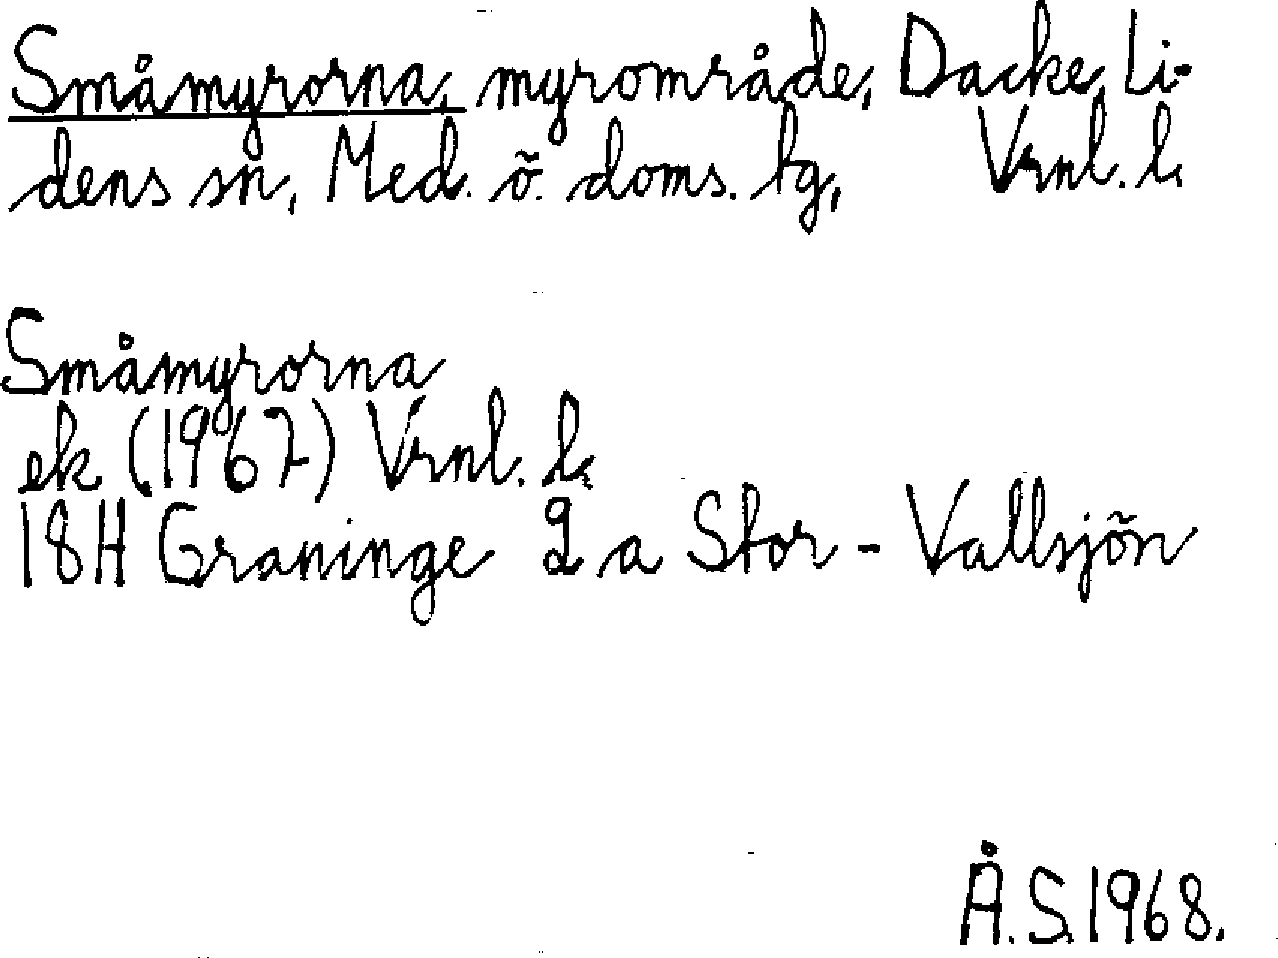 Småmyrorna, myrområde, Dacke, Li-
dens sn, Med. ö. doms. tg, Vrnl. l.
Småmyrorna
ek (1967) Vrnl. l.
18H Graninge 2 a Stor-Vallsjön
Å.S.1968.